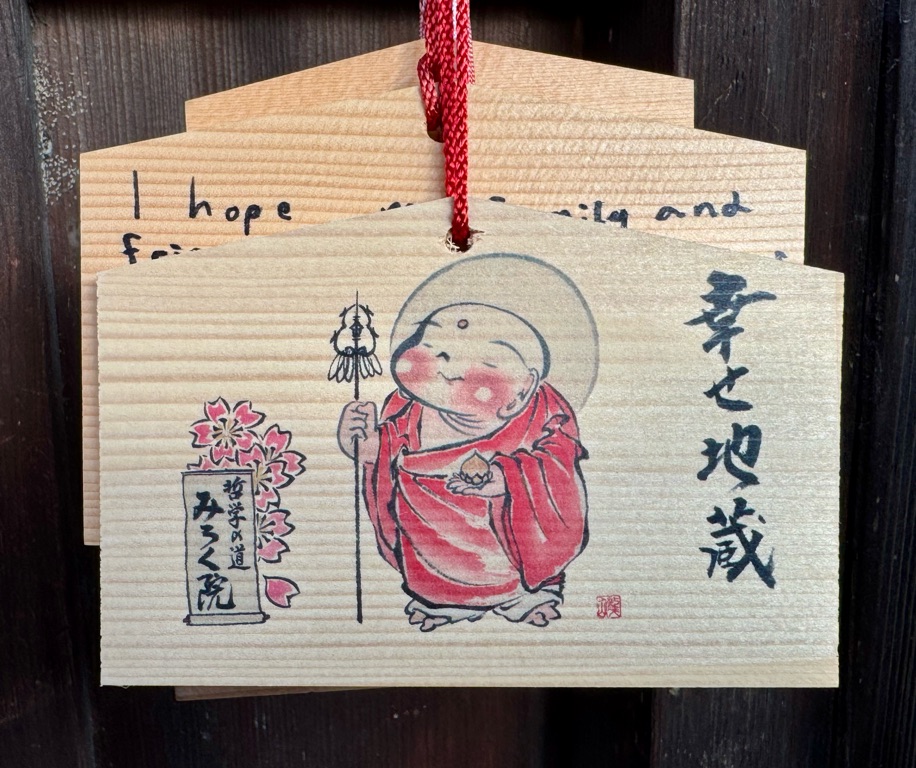 I hope my family and
幸せ地蔵
哲学の道
みろく院